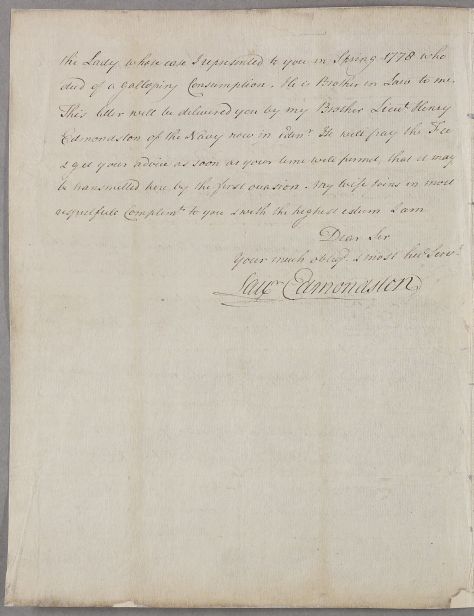 the Lady whose case I represented to you in Spring 1778 who
died of a galloping Consumption. He is Brother in Law to me.
This letter will be delivered you by my Brother Lieut. Henry
Edmondston of the Navy now in Edinr. He will pay the Fee
& get your advice as soon as your time will permit, that it may
be transmitted here by the first occasion. My wife joins in most
respectfull Complimts to you & with the highest esteem I am
Dear Sir
Your much obligd. & most hule Servt.
Laur. Edmondston